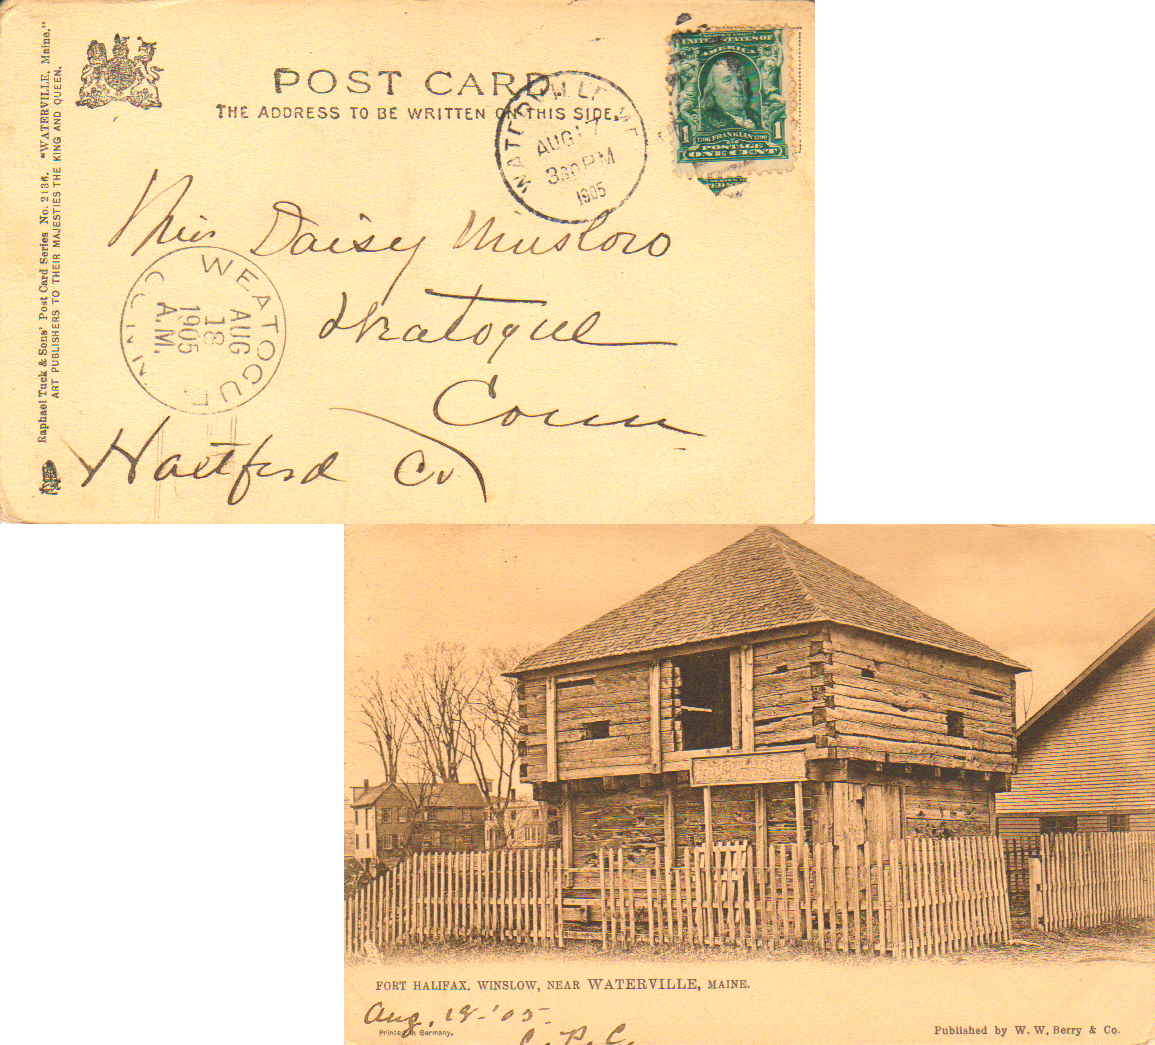 POST CARD
THE ADDRESS TO BE WRITTEN ON THIS SIDE.
Raphael Tuck & Sons' Post Card Series No. 2136. "WATERVILLE, Maine,"
ART PUBLISHERS TO THEIR MAJESTIES THE KING AND QUEEN.
WATERVILLE ME
AUG 17
3 30 PM
1905
UNITED STATES OF
AMERICA
1 FRANKLIN 1
POSTAGE
ONE CENT
Miss Daisy Winslow
Weatogue
Conn
Hartford Co
WEATOGUE
CONN.
AUG
18
1905
A.M.
FORT HALIFAX, WINSLOW, NEAR WATERVILLE, MAINE.
Aug. 18-'05-
Printed in Germany.
C. P. C.
Published by W. W. Berry & Co.